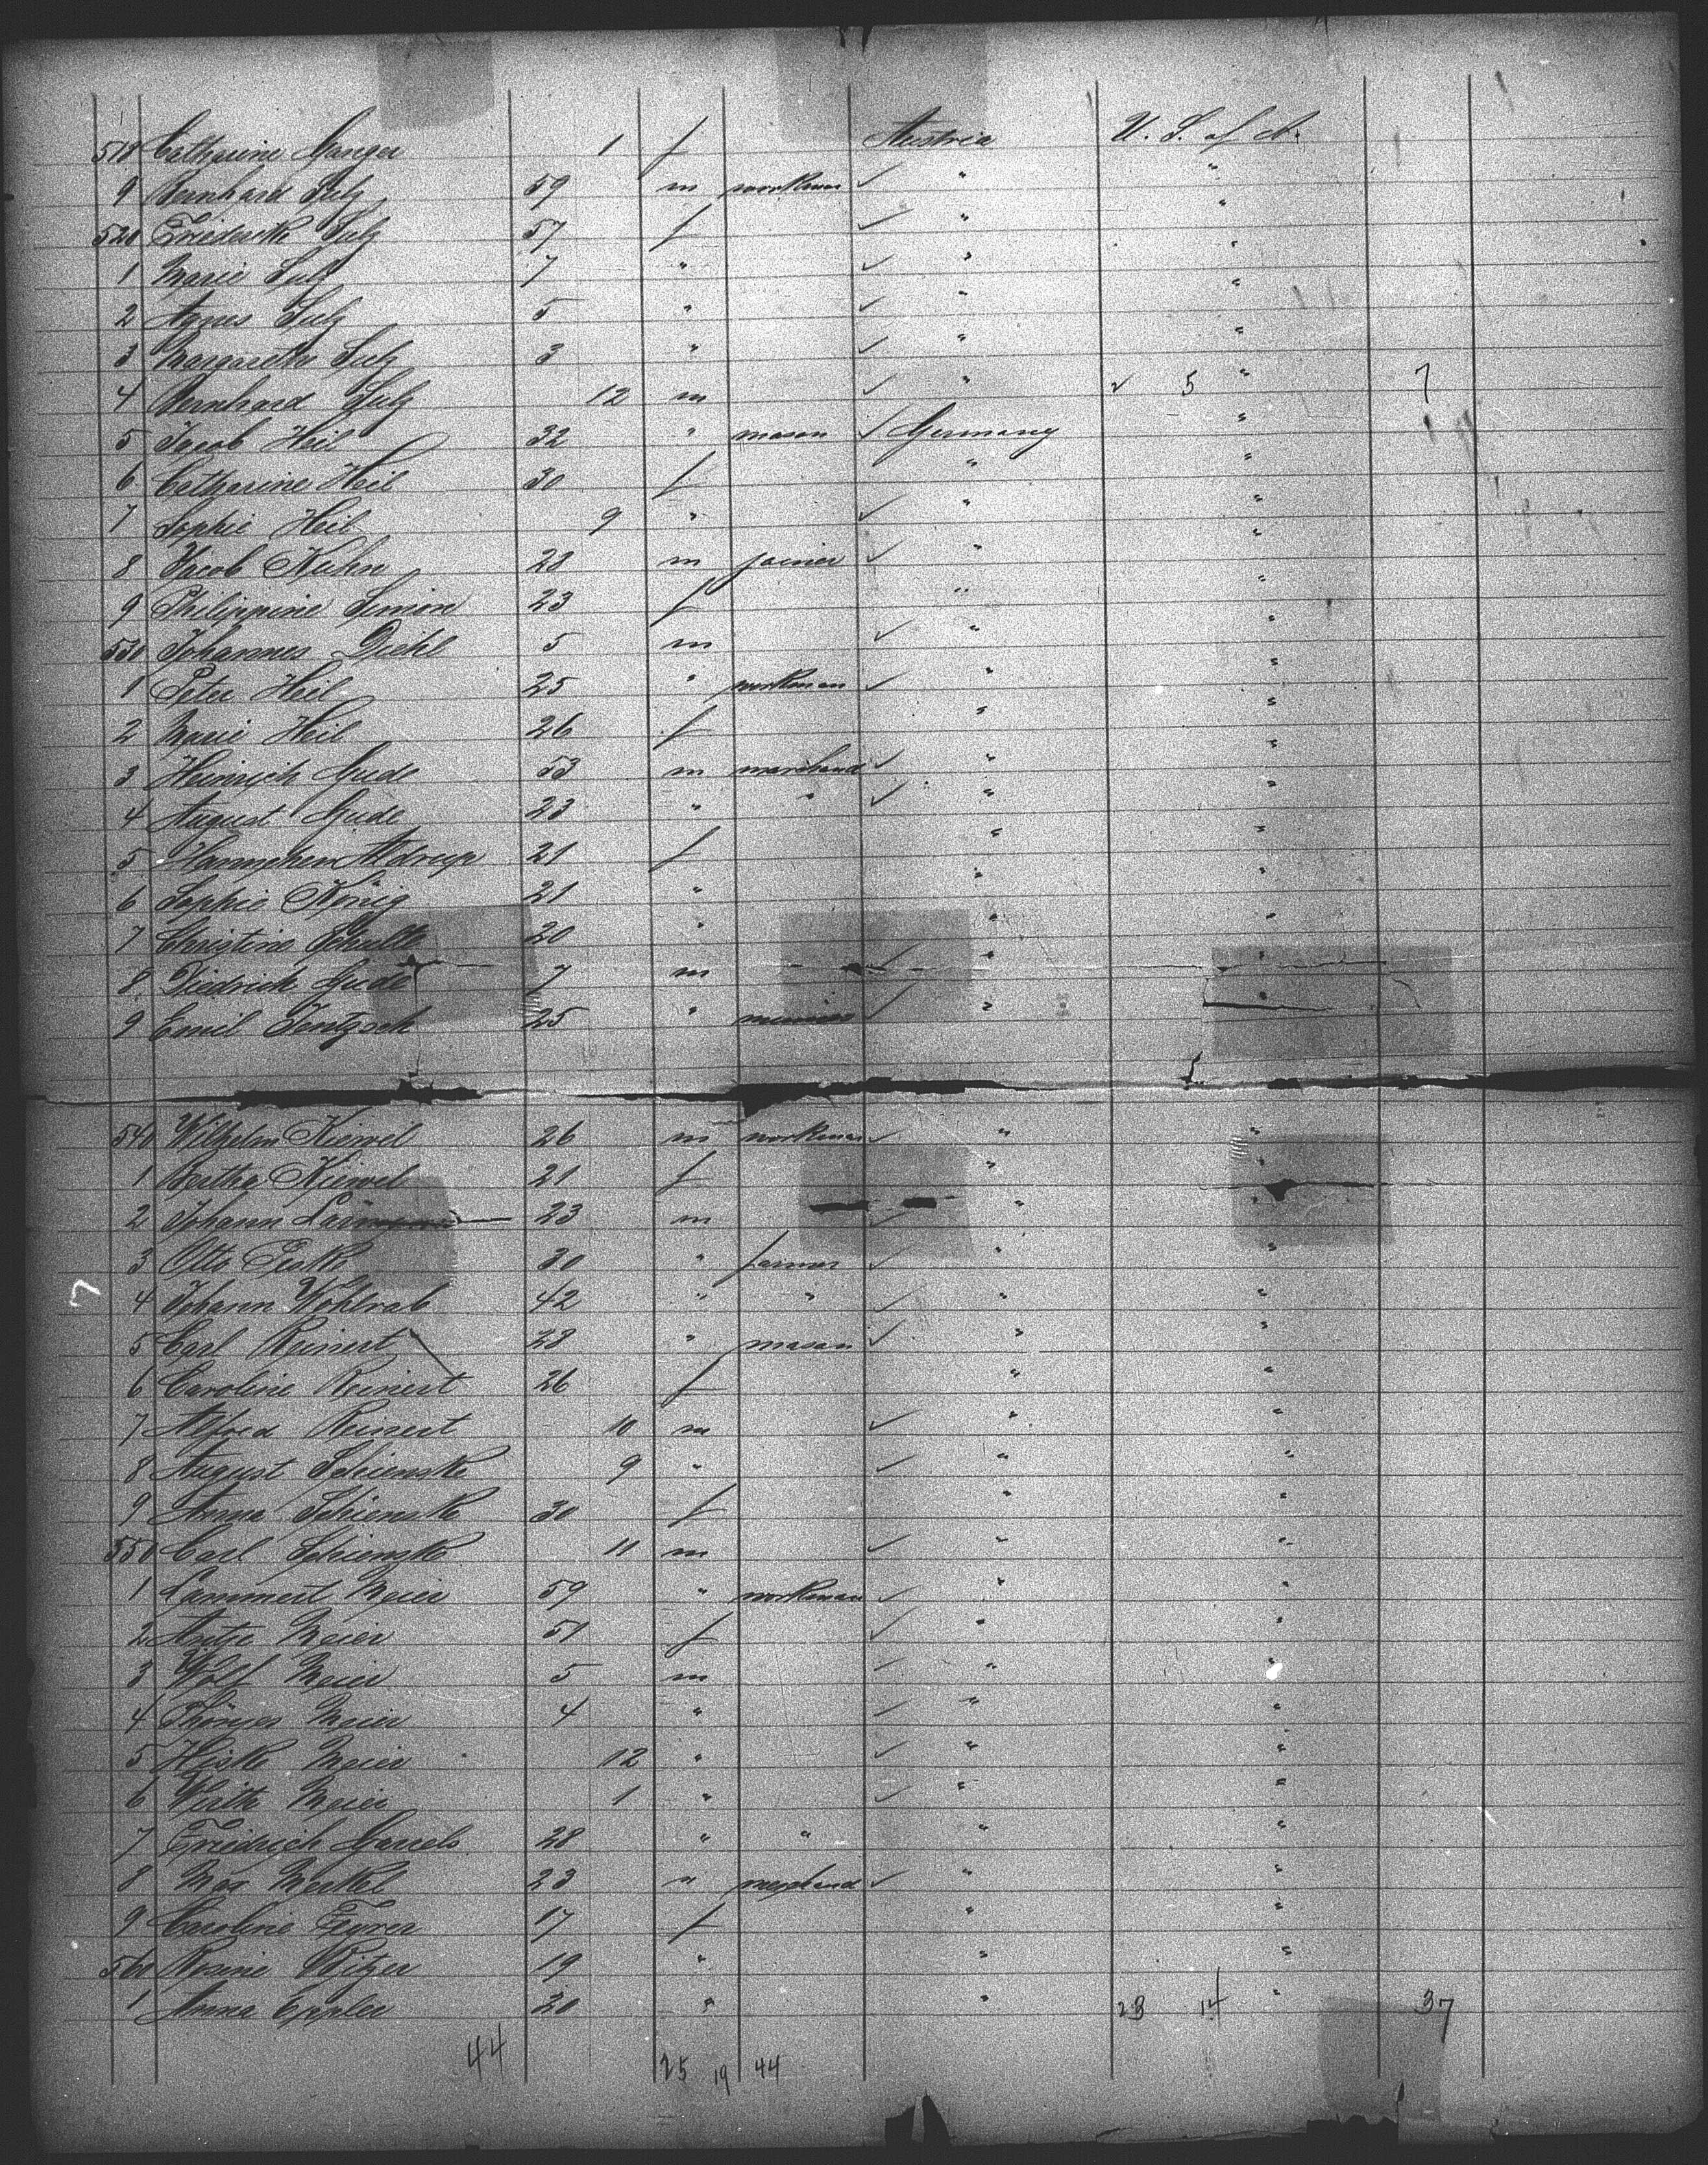 518 Catharine Ganger 1 f Austria U. S. of A.
9 Bernhard Sulz 59 m workman ✓ " "
520 Friedericke Sulz 57 f ✓ " "
1 Marie Sulz 7 " ✓ " "
2 Agnes Sulz 5 " ✓ " "
3 Margarethe Sulz 3 " ✓ " "
4 Bernhard Sulz 12 m ✓ " 2 5 " 7
5 Jacob Heil 32 " mason ✓ Germany "
6 Catharine Heil 30 f " "
7 Sophie Heil 9 " ✓ " "
8 Jacob Kuhn 28 m joiner ✓ " "
9 Philippine Simon 23 f " "
530 Johannes Diehl 5 m ✓ " "
1 Peter Heil 25 " workman ✓ " "
2 Marie Heil 26 f " "
3 Heinrich Gude 53 m marchand ✓ " "
4 August Gude 23 " " ✓ " "
5 Aldrup 21 f " "
6 Sophie König 21 " " "
7 Christine Schulte 20 " " "
8 Diedrich Gude 7 m ✓ " "
9 Emil Jentzsch 25 " ✓ " "
540 Wilhelm Kiewel 26 m workman ✓ " "
1 Bertha Kiewel 21 f " "
2 Johann 23 m ✓ " "
3 Otto 30 " farmer ✓ " "
4 Johann Wohlrab 42 " " ✓ " "
5 Carl Reinert 28 " mason ✓ " "
6 Caroline Reinert 26 f " "
7 Alfred Reinert 10 m ✓ " "
8 August Schienske 9 " ✓ " "
9 Anna Schienske 30 f " "
550 Carl Schienske 11 m ✓ " "
1 Lammert Meier 59 " workman ✓ " "
2 Antje Meier 51 f ✓ " "
3 Wolf Meier 5 m ✓ " "
4 Thönjes Meier 4 " ✓ " "
5 Heske Meier 12 " ✓ " "
6 Wirth Meier 1 " ✓ " "
7 Friedrich Garrels 28 " " " "
8 Max Merkel 23 " marchand ✓ " "
9 Caroline Feyrer 17 f " "
560 Rosine Ritzer 19 " " "
1 Anna Eppler 20 " " 23 14 " 37
44 25 19 44
7